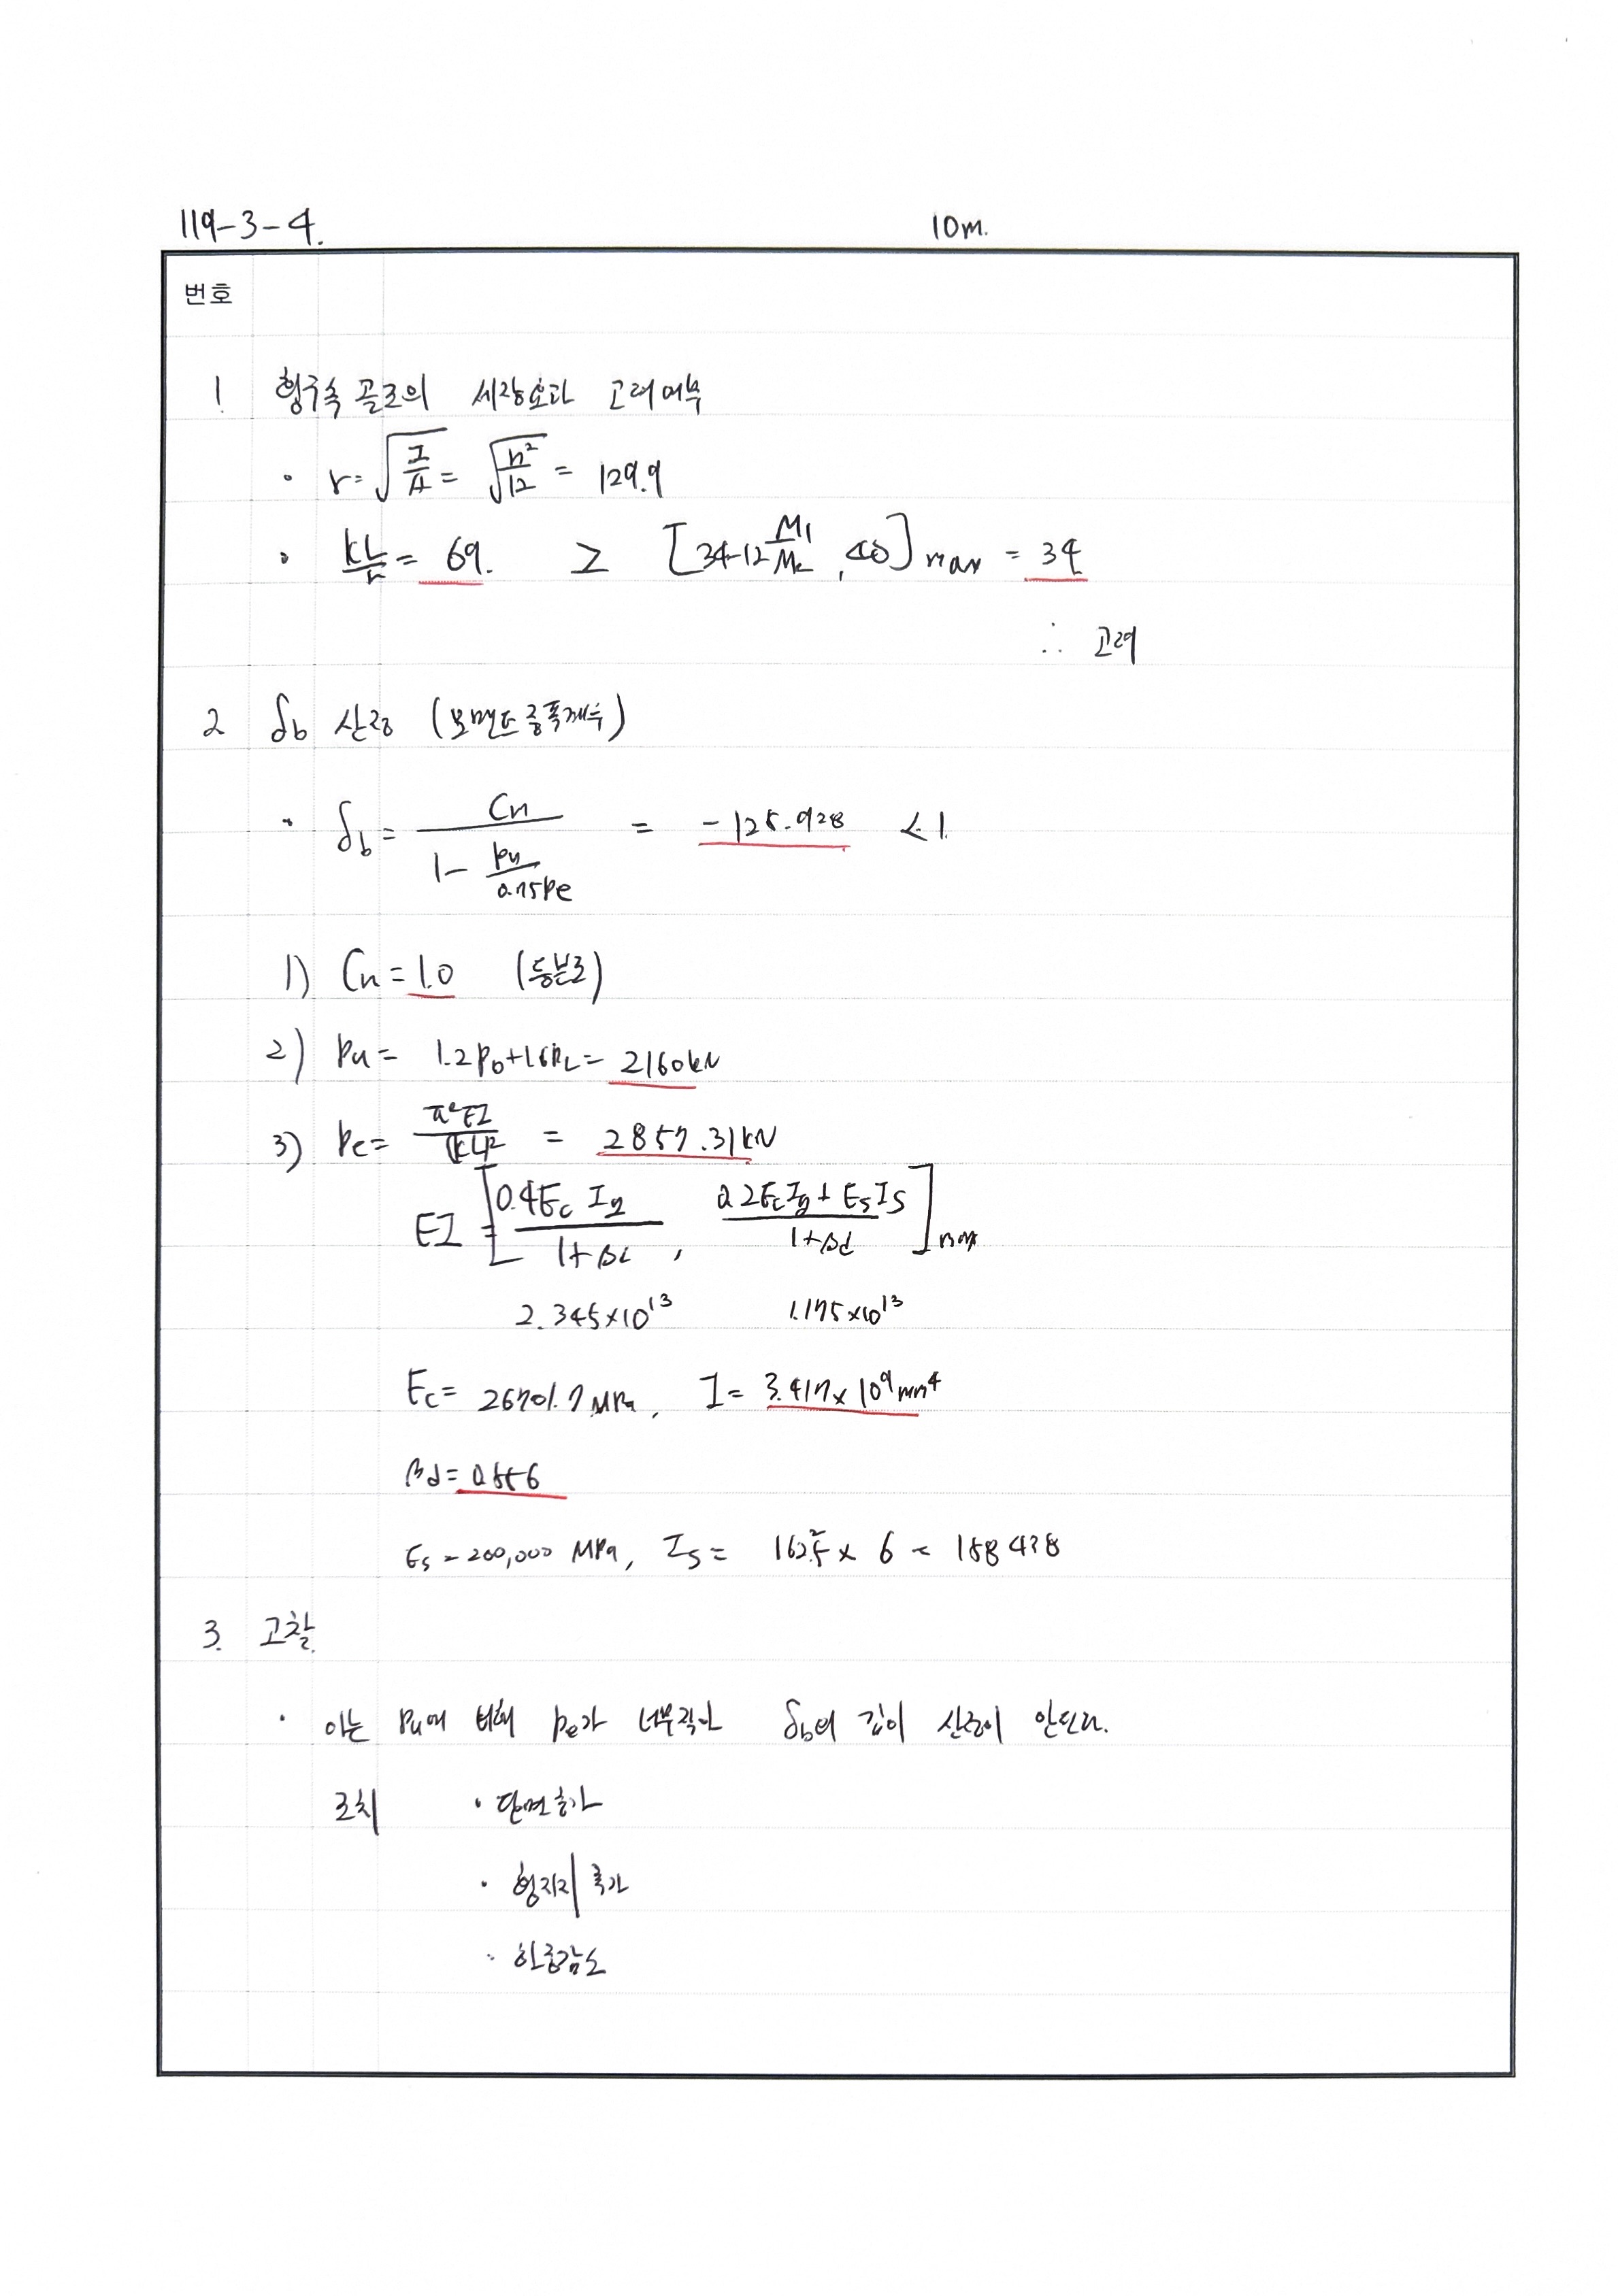 119-3-4.
10m.
번호
1 횡구속 골조의 세장효과 고려여부
· r = √(I/A) = √(h²/12) = 129.9
· kL/r = 69. ≥ [34-12 M1/M2, 40]max = 34
∴ 고려
2 δb 산정 (모멘트 증폭계수)
· δb = Cm / (1 - Pu/0.75Pe) = -125.928 < 1.
1) Cm = 1.0 (등분포)
2) Pu = 1.2PD+1.6PL = 2160kN
3) Pe = π²EI/(kL)² = 2857.31kN
EI = [0.4Ec Ig / 1+βd , 0.2EcIg + EsIs / 1+βd]max
2.345×10¹³ 1.175×10¹³
Ec = 26701.7 MPa, I = 3.417×10⁹mm⁴
βd = 0.556
Es = 200,000 MPa, Is = 162.5² × 6 = 158438
3. 고찰
· 이는 Pu에 비해 Pe가 너무작아 δb의 값이 산정이 안된다.
조치 · 단면증가
· 횡지지 추가
· 하중감소